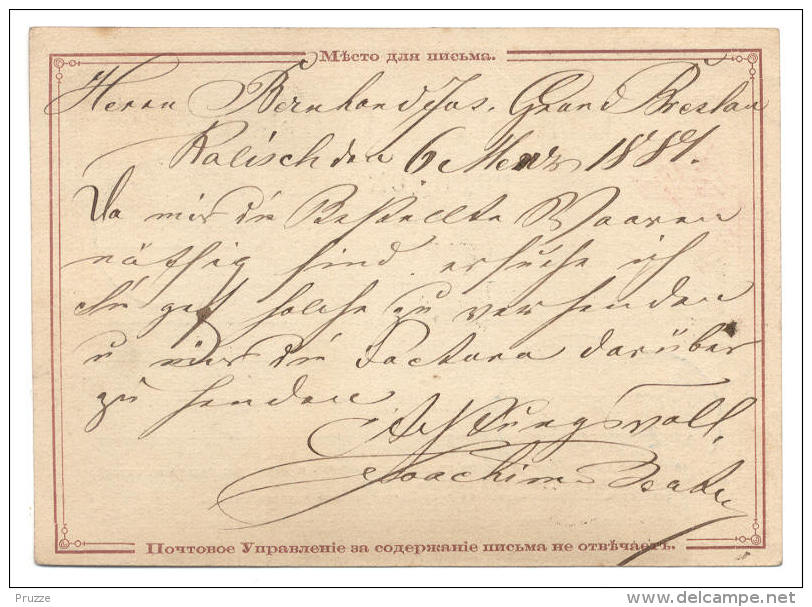 Мѣсто для письма.
Herrn Bernhard Jos. Grund Breslau
Kalisch den 6 Merz 1887.
Da mir die Bestellte Waaren
nöthig sind ersuche ich
Sie gefl solche zu versenden
u mir die Factura darüber
zu senden
Achtungsvoll
Joachim
Почтовое Управленіе за содержаніе письма не отвѣчаетъ.
Pruzze
delcampe.net